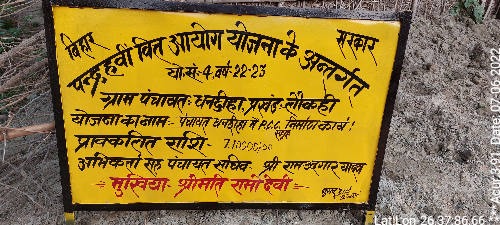 बिहार सरकार
पन्द्रहवीं वित आयोग योजना के अन्तर्गत
यो.सं.- 4, वर्ष 22-23
ग्राम पंचायत:- धनदीहा, प्रखंड- लौकही
योजना का नाम:- पंचायत धनदीहा में P.C.C निर्माण कार्य।
प्राक्कलित राशि-
अभिकर्ता सह पंचायत सचिव- श्री राम अवतार यादव
मुखिया- श्रीमति रामी देवी
Lat/Lon 26 37.86.66